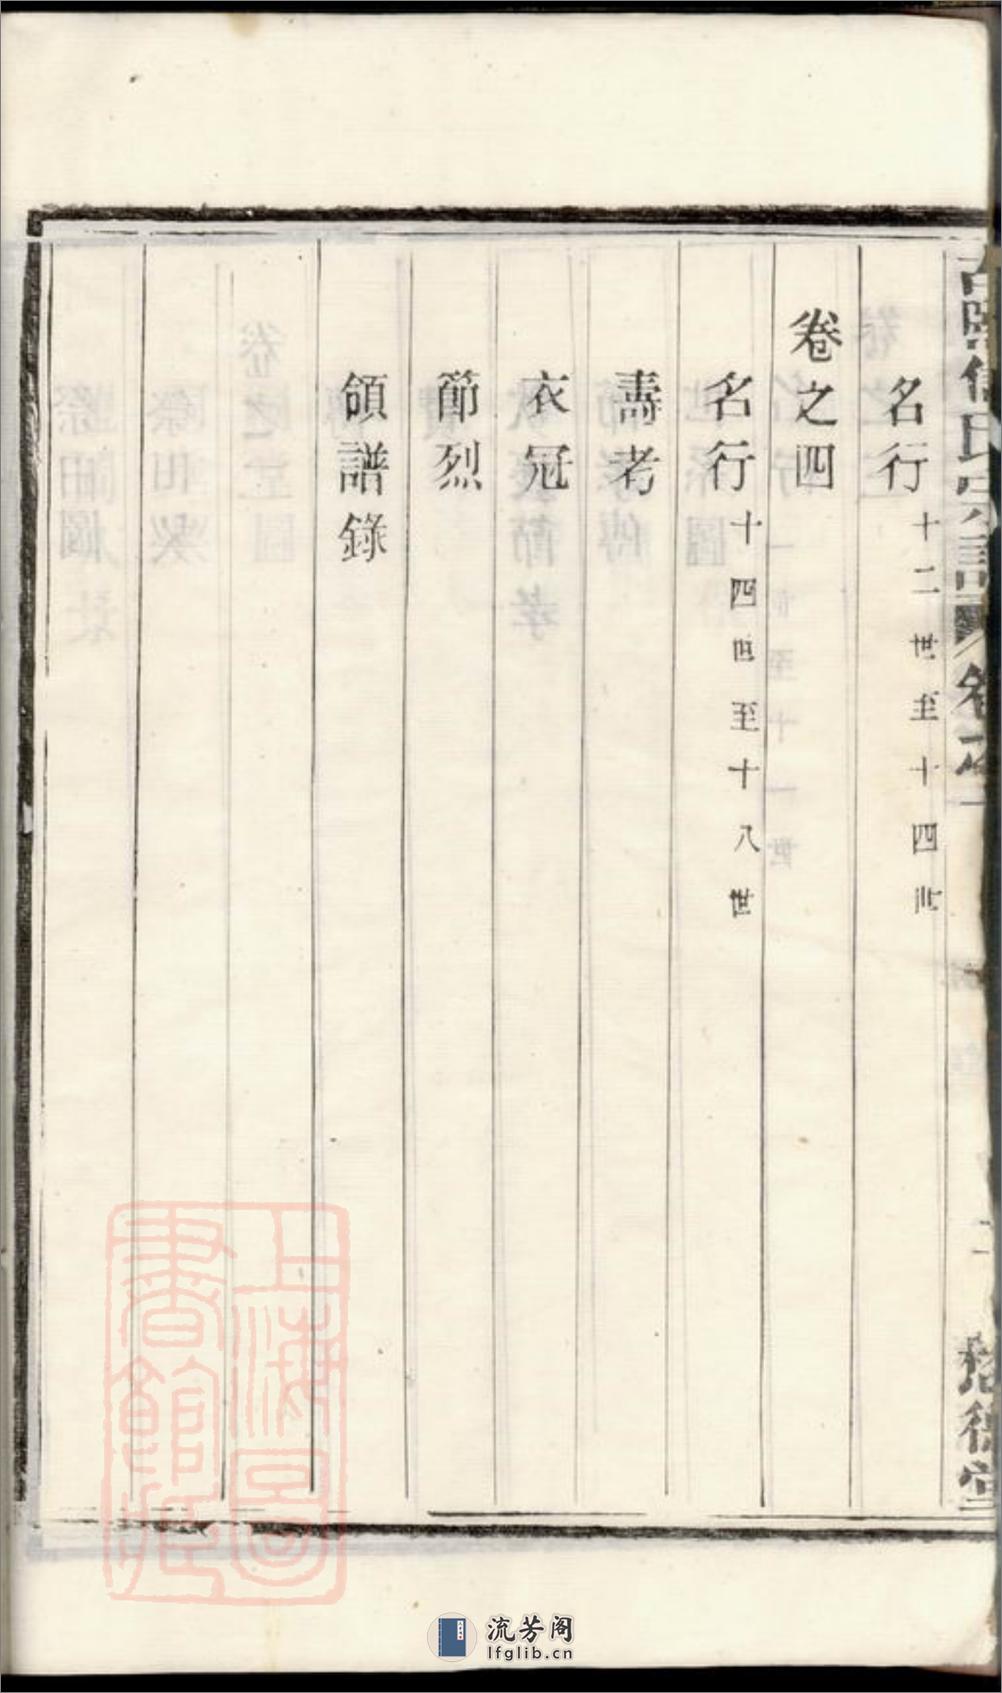 名行十二世至十四世
卷之四
名行十四世至十八世
壽考
衣冠
節烈
領譜錄
上海圖書館藏
流芳阁
lfglib.cn